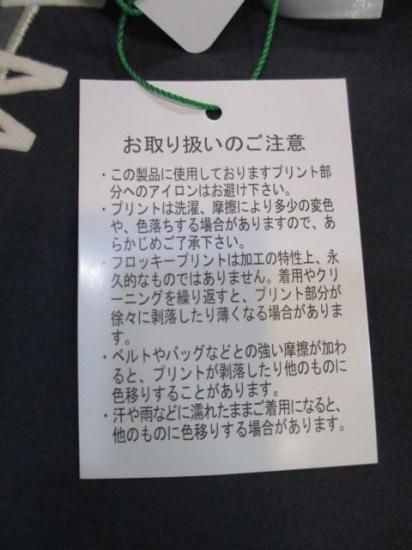 お取り扱いのご注意
・この製品に使用しておりますプリント部
分へのアイロンはお避け下さい。
・プリントは洗濯、摩擦により多少の変色
や、色落ちする場合がありますので、あ
らかじめご了承下さい。
・フロッキープリントは加工の特性上、永
久的なものではありません。着用やクリ
ーニングを繰り返すと、プリント部分が
徐々に剥落したり薄くなる場合がありま
す。
・ベルトやバッグなどとの強い摩擦が加わ
ると、プリントが剥落したり他のものに
色移りすることがあります。
・汗や雨などに濡れたままご着用になると、
他のものに色移りする場合があります。